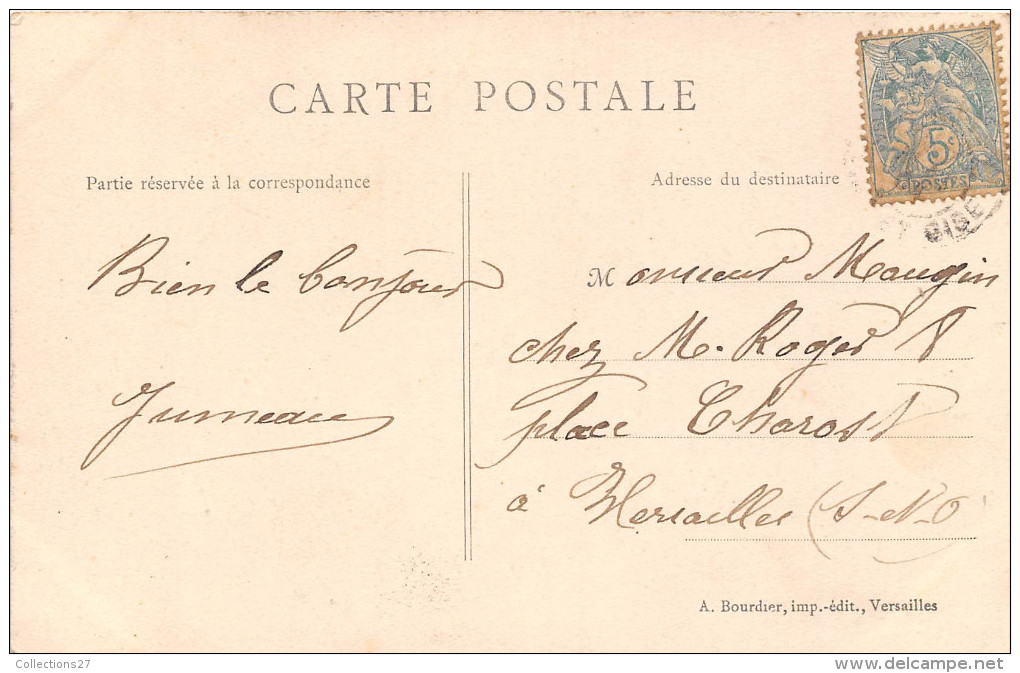 CARTE POSTALE
5c
POSTES
OISE
Partie réservée à la correspondance
Adresse du destinataire
Bien le bonjour
Jumeau
Monsieur Maugin
chez M. Roger
place Charost
à Versailles (S-&-O)
A. Bourdier, imp.-édit., Versailles
Collections27
www.delcampe.net